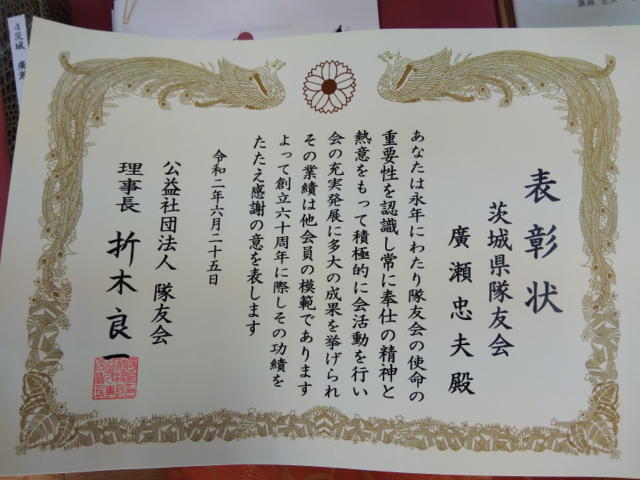 表彰状
茨城県隊友会
廣瀬忠夫殿
あなたは永年にわたり隊友会の使命の
重要性を認識し常に奉仕の精神と
熱意をもって積極的に会活動を行い
会の充実発展に多大の成果を挙げられ
その業績は他会員の模範であります
よって創立六十周年に際しその功績を
たたえ感謝の意を表します
令和二年六月二十五日
公益社団法人 隊友会
理事長 折木良一
4茨城 廣瀬
廣瀬 忠夫